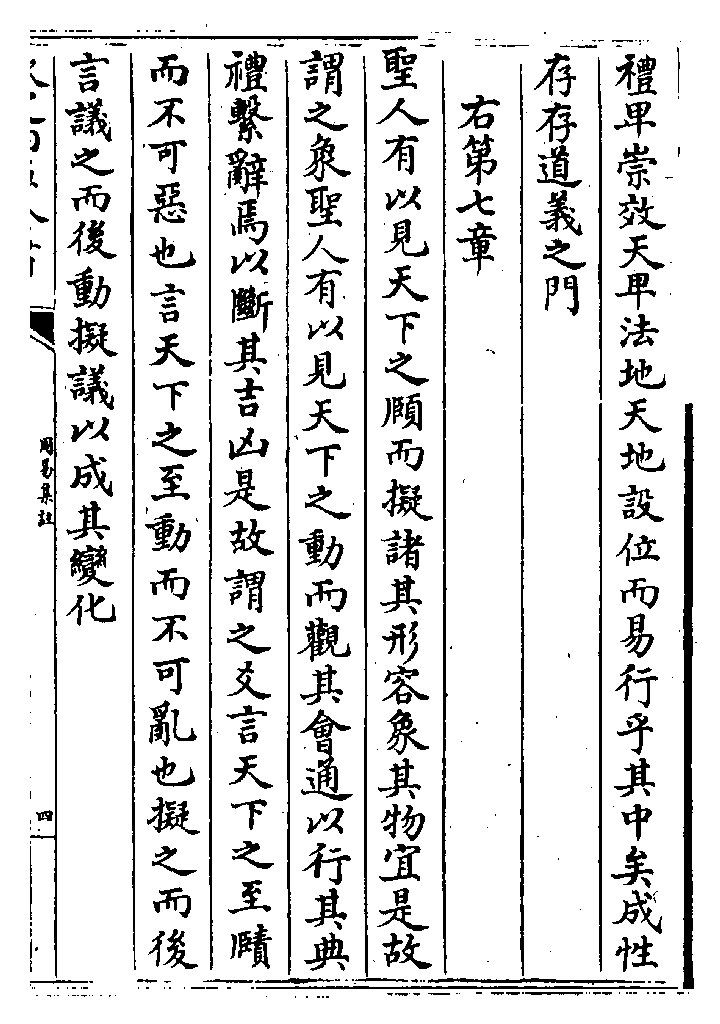 禮卑崇效天卑法地天地設位而易行乎其中矣成性
存存道義之門
右第七章
聖人有以見天下之賾而擬諸其形容象其物宜是故
謂之象聖人有以見天下之動而觀其會通以行其典
禮繫辭焉以斷其吉凶是故謂之爻言天下之至賾
而不可惡也言天下之至動而不可亂也擬之而後
言議之而後動擬議以成其變化
周易集註
四